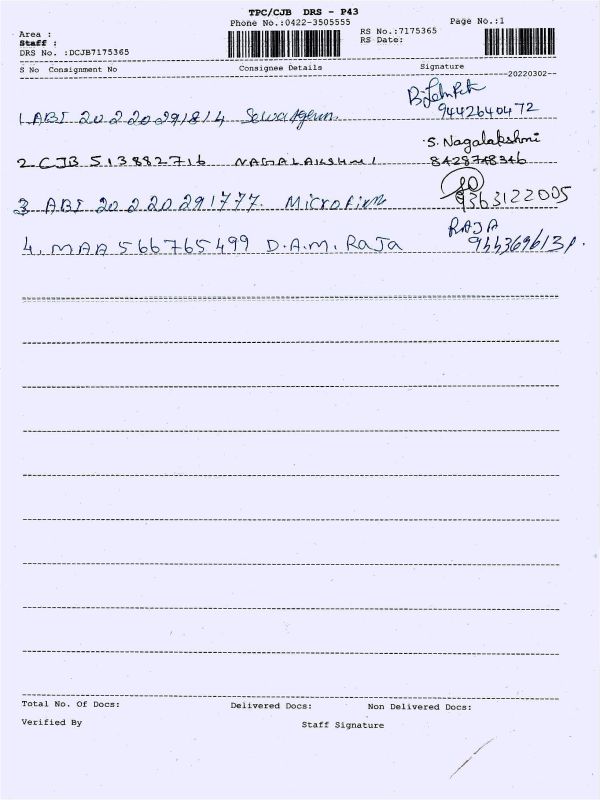 TPC/CJB DRS - P43
Phone No.:0422-3505555 Page No.:1
Area : RS No.:7175365
Staff : RS Date:
DRS No. :DCJB7175365
S No Consignment No Consignee Details Signature
--20220302--
1 ABI 20220291814
9442640472
S. Nagalakshmi
2 CJB 513882716 NAGALAKSHMI 8428748346
3 ABI 20220291777. Microfirm 9363122005
RAJA
4. MAA 566765499 D.A.M. RaJa
Total No. Of Docs: Delivered Docs: Non Delivered Docs:
Verified By Staff Signature